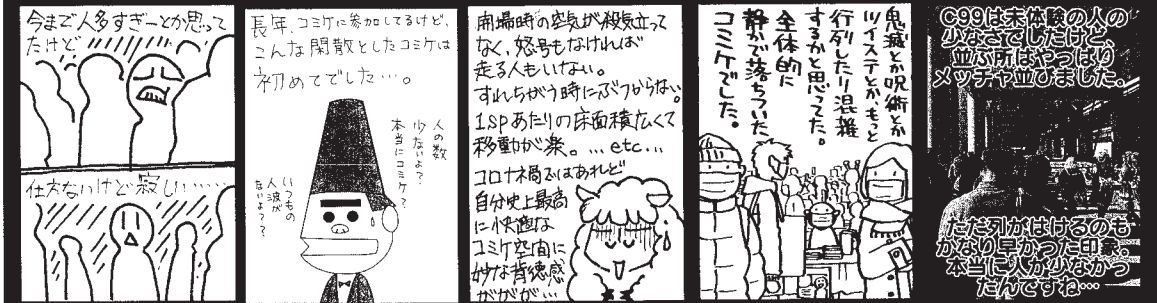 今まで人多すぎーとか思って
たけど
仕方ないけど寂しい……
長年、コミケに参加してるけど、
こんな閑散としたコミケは
初めてでした…。
人の数
少ないよ?
本当にコミケ??
いつもの
人波が
ないよ??
開場時の空気が殺気立って
なく、怒号もなければ
走る人もいない。
すれちがう時にぶつからない。
1spあたりの床面積広くて
移動が楽。…etc…
コロナ禍ではあれど
自分史上最高
に快適な
コミケ空間に
妙な背徳感
ががが…
鬼滅とか呪術とか
ツイステとか、もっと
行列したり混雑
するかと思ってた。
全体的に
静かで落ちついた
コミケでした。
C99は未体験の人の
少なさでしたけど、
並ぶ所はやっぱり
メッチャ並びました。
ただ列がはけるのも
かなり早かった印象。
本当に人が少なかっ
たんですね…